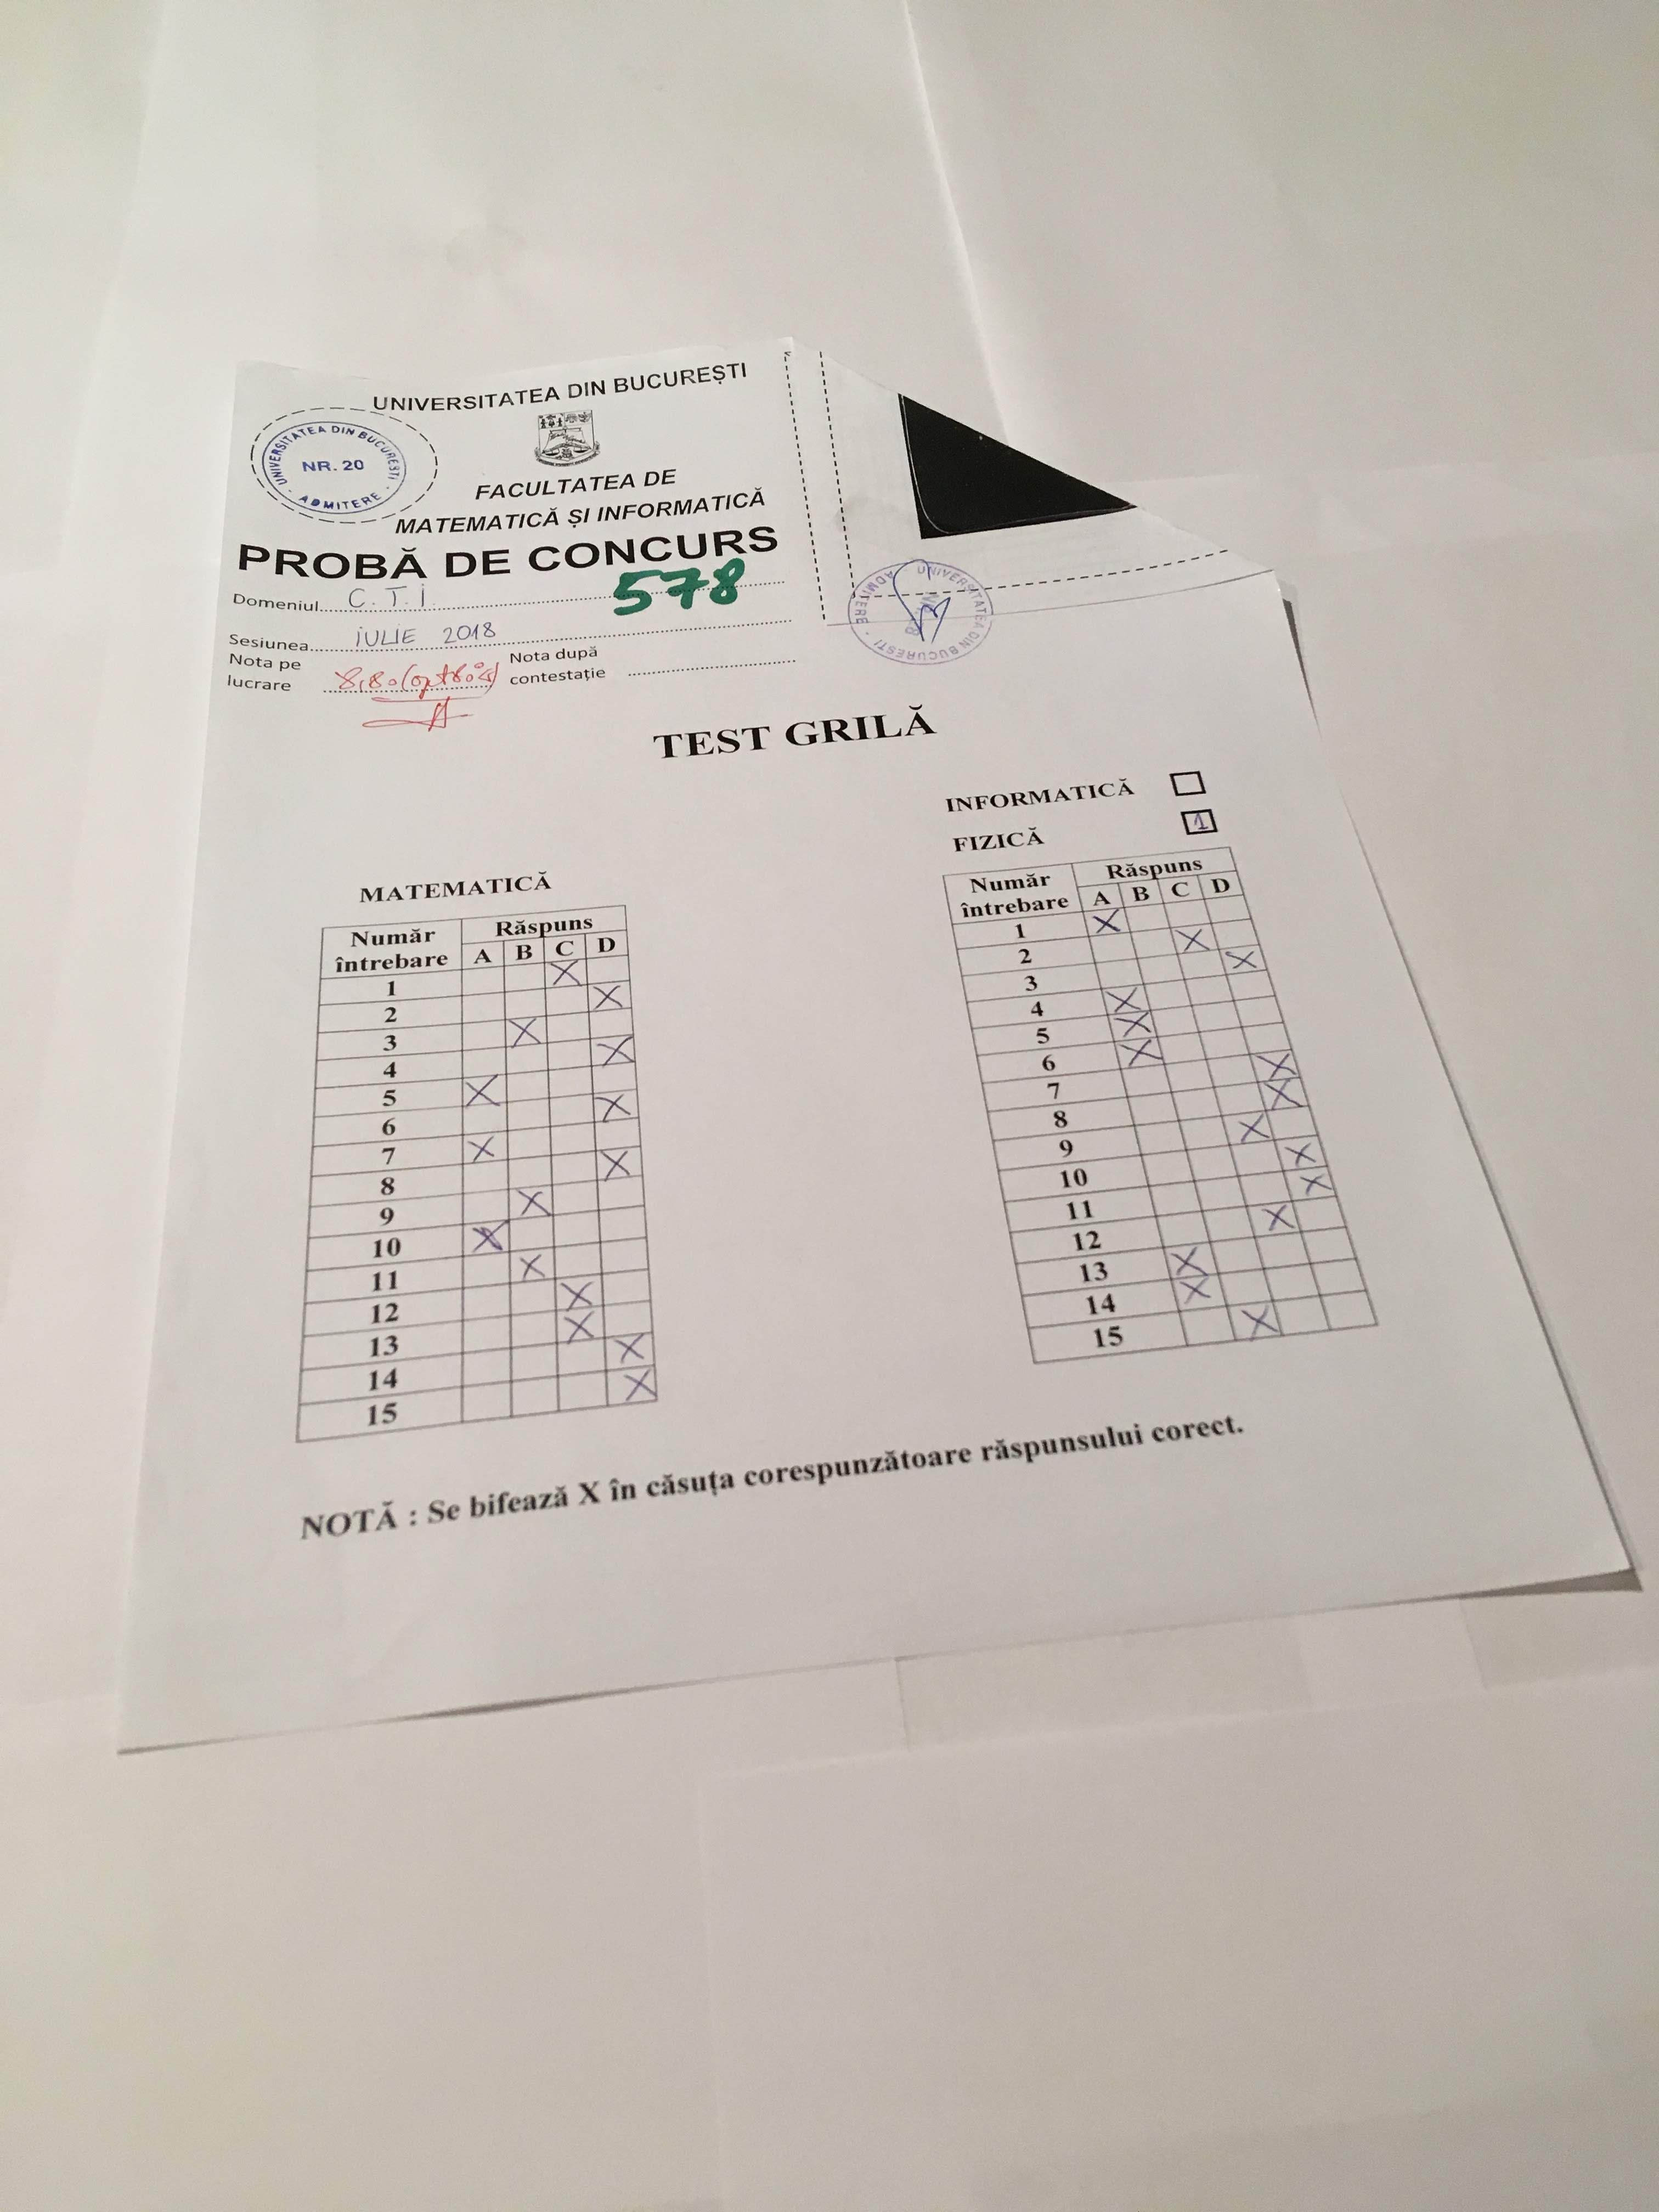 UNIVERSITATEA DIN BUCUREȘTI
UNIVERSITATEA DIN BUCUREȘTI
NR. 20
ADMITERE
FACULTATEA DE
MATEMATICĂ ȘI INFORMATICĂ
PROBĂ DE CONCURS
Domeniul C.T.I. 578
Sesiunea IULIE 2018
Nota pe lucrare 8,80 (opt 80%)
Nota după contestație
UNIVERSITATEA DIN BUCUREȘTI
ADMITERE
TEST GRILĂ
INFORMATICĂ
FIZICĂ 1
MATEMATICĂ
Număr întrebare Răspuns
A B C D
1 X
2 X
3 X
4 X
5 X
6 X
7 X
8 X
9 X
10 X
11 X
12 X
13 X
14 X
15 X
Număr întrebare Răspuns
A B C D
1 X
2 X
3 X
4 X
5 X
6 X
7 X
8 X
9 X
10 X
11 X
12 X
13 X
14 X
15 X
NOTĂ : Se bifează X în căsuța corespunzătoare răspunsului corect.